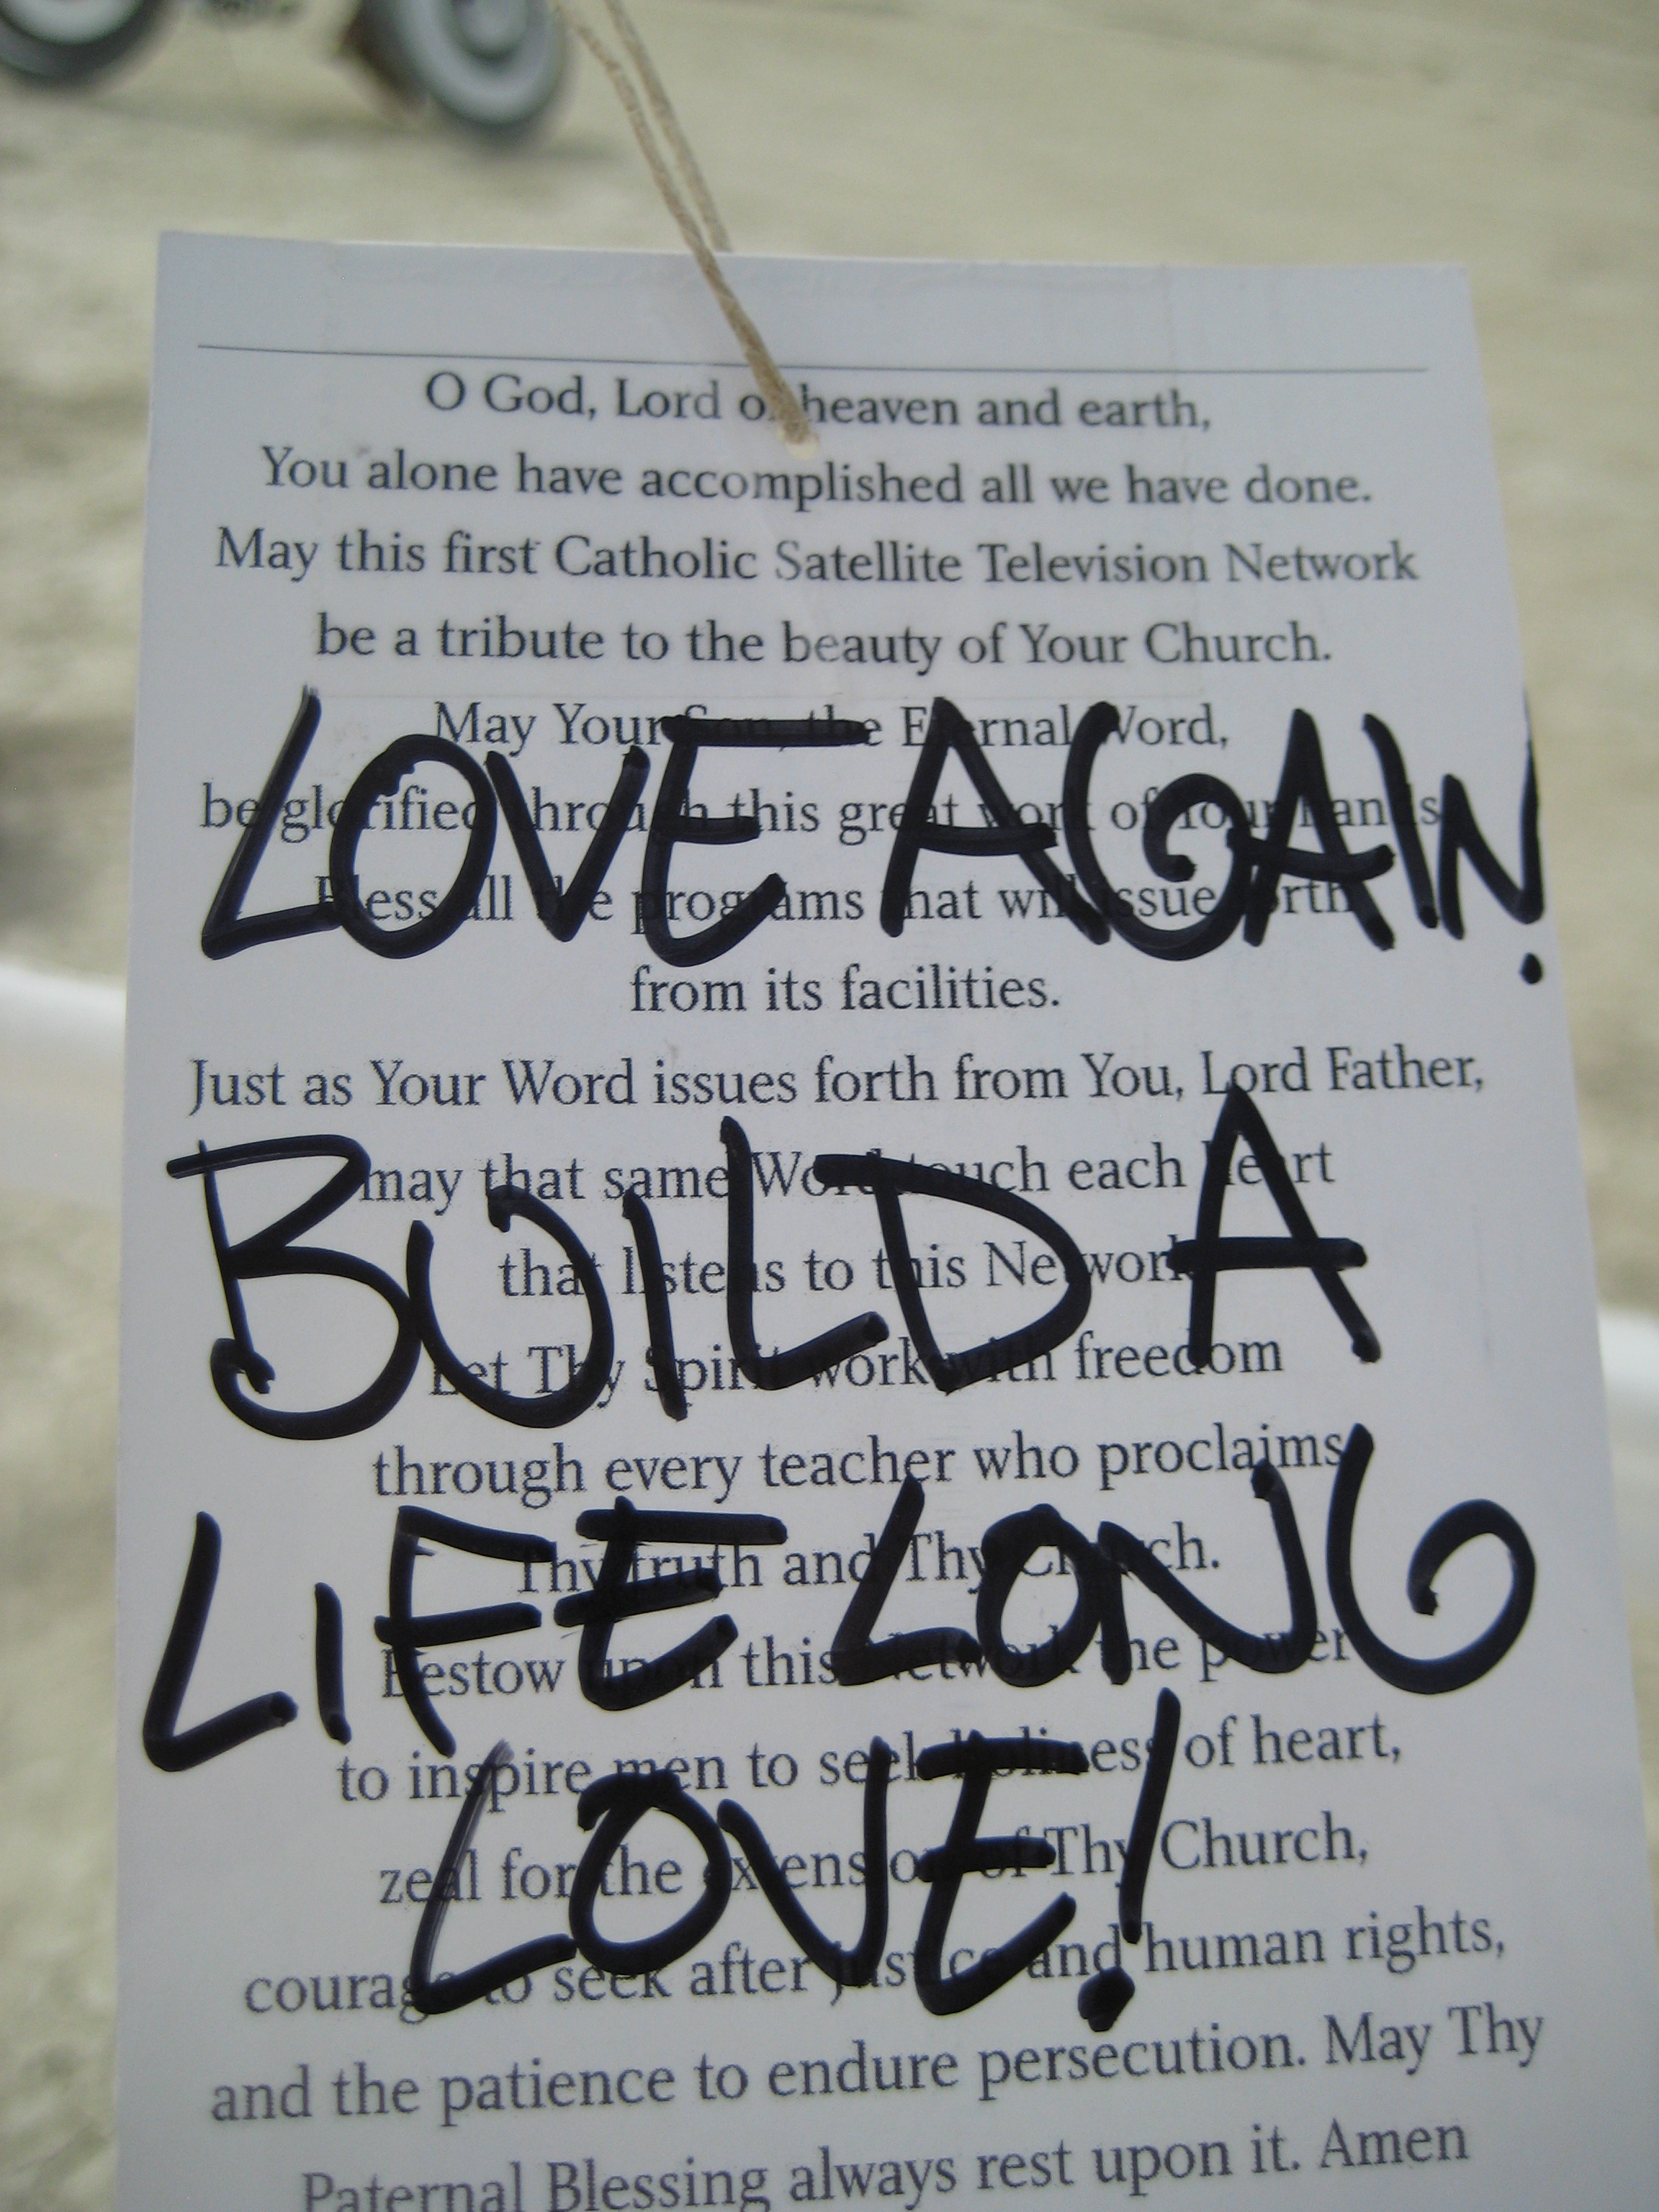 O God, Lord of heaven and earth,
You alone have accomplished all we have done.
May this first Catholic Satellite Television Network
be a tribute to the beauty of Your Church.
May Your Son, the Eternal Word,
LOVE AGAIN!
be glorified through this great work of Your hands
Bless all the programs that will issue forth
from its facilities.
Just as Your Word issues forth from You, Lord Father,
may that same Word touch each heart
BUILD A
that listens to this Network
Let Thy Spirit work with freedom
through every teacher who proclaims
Thy truth and Thy Church.
LIFE LONG
Bestow upon this Network the power
to inspire men to seek holiness of heart,
LOVE!
zeal for the extension of Thy Church,
courage to seek after justice and human rights,
and the patience to endure persecution. May Thy
Paternal Blessing always rest upon it. Amen